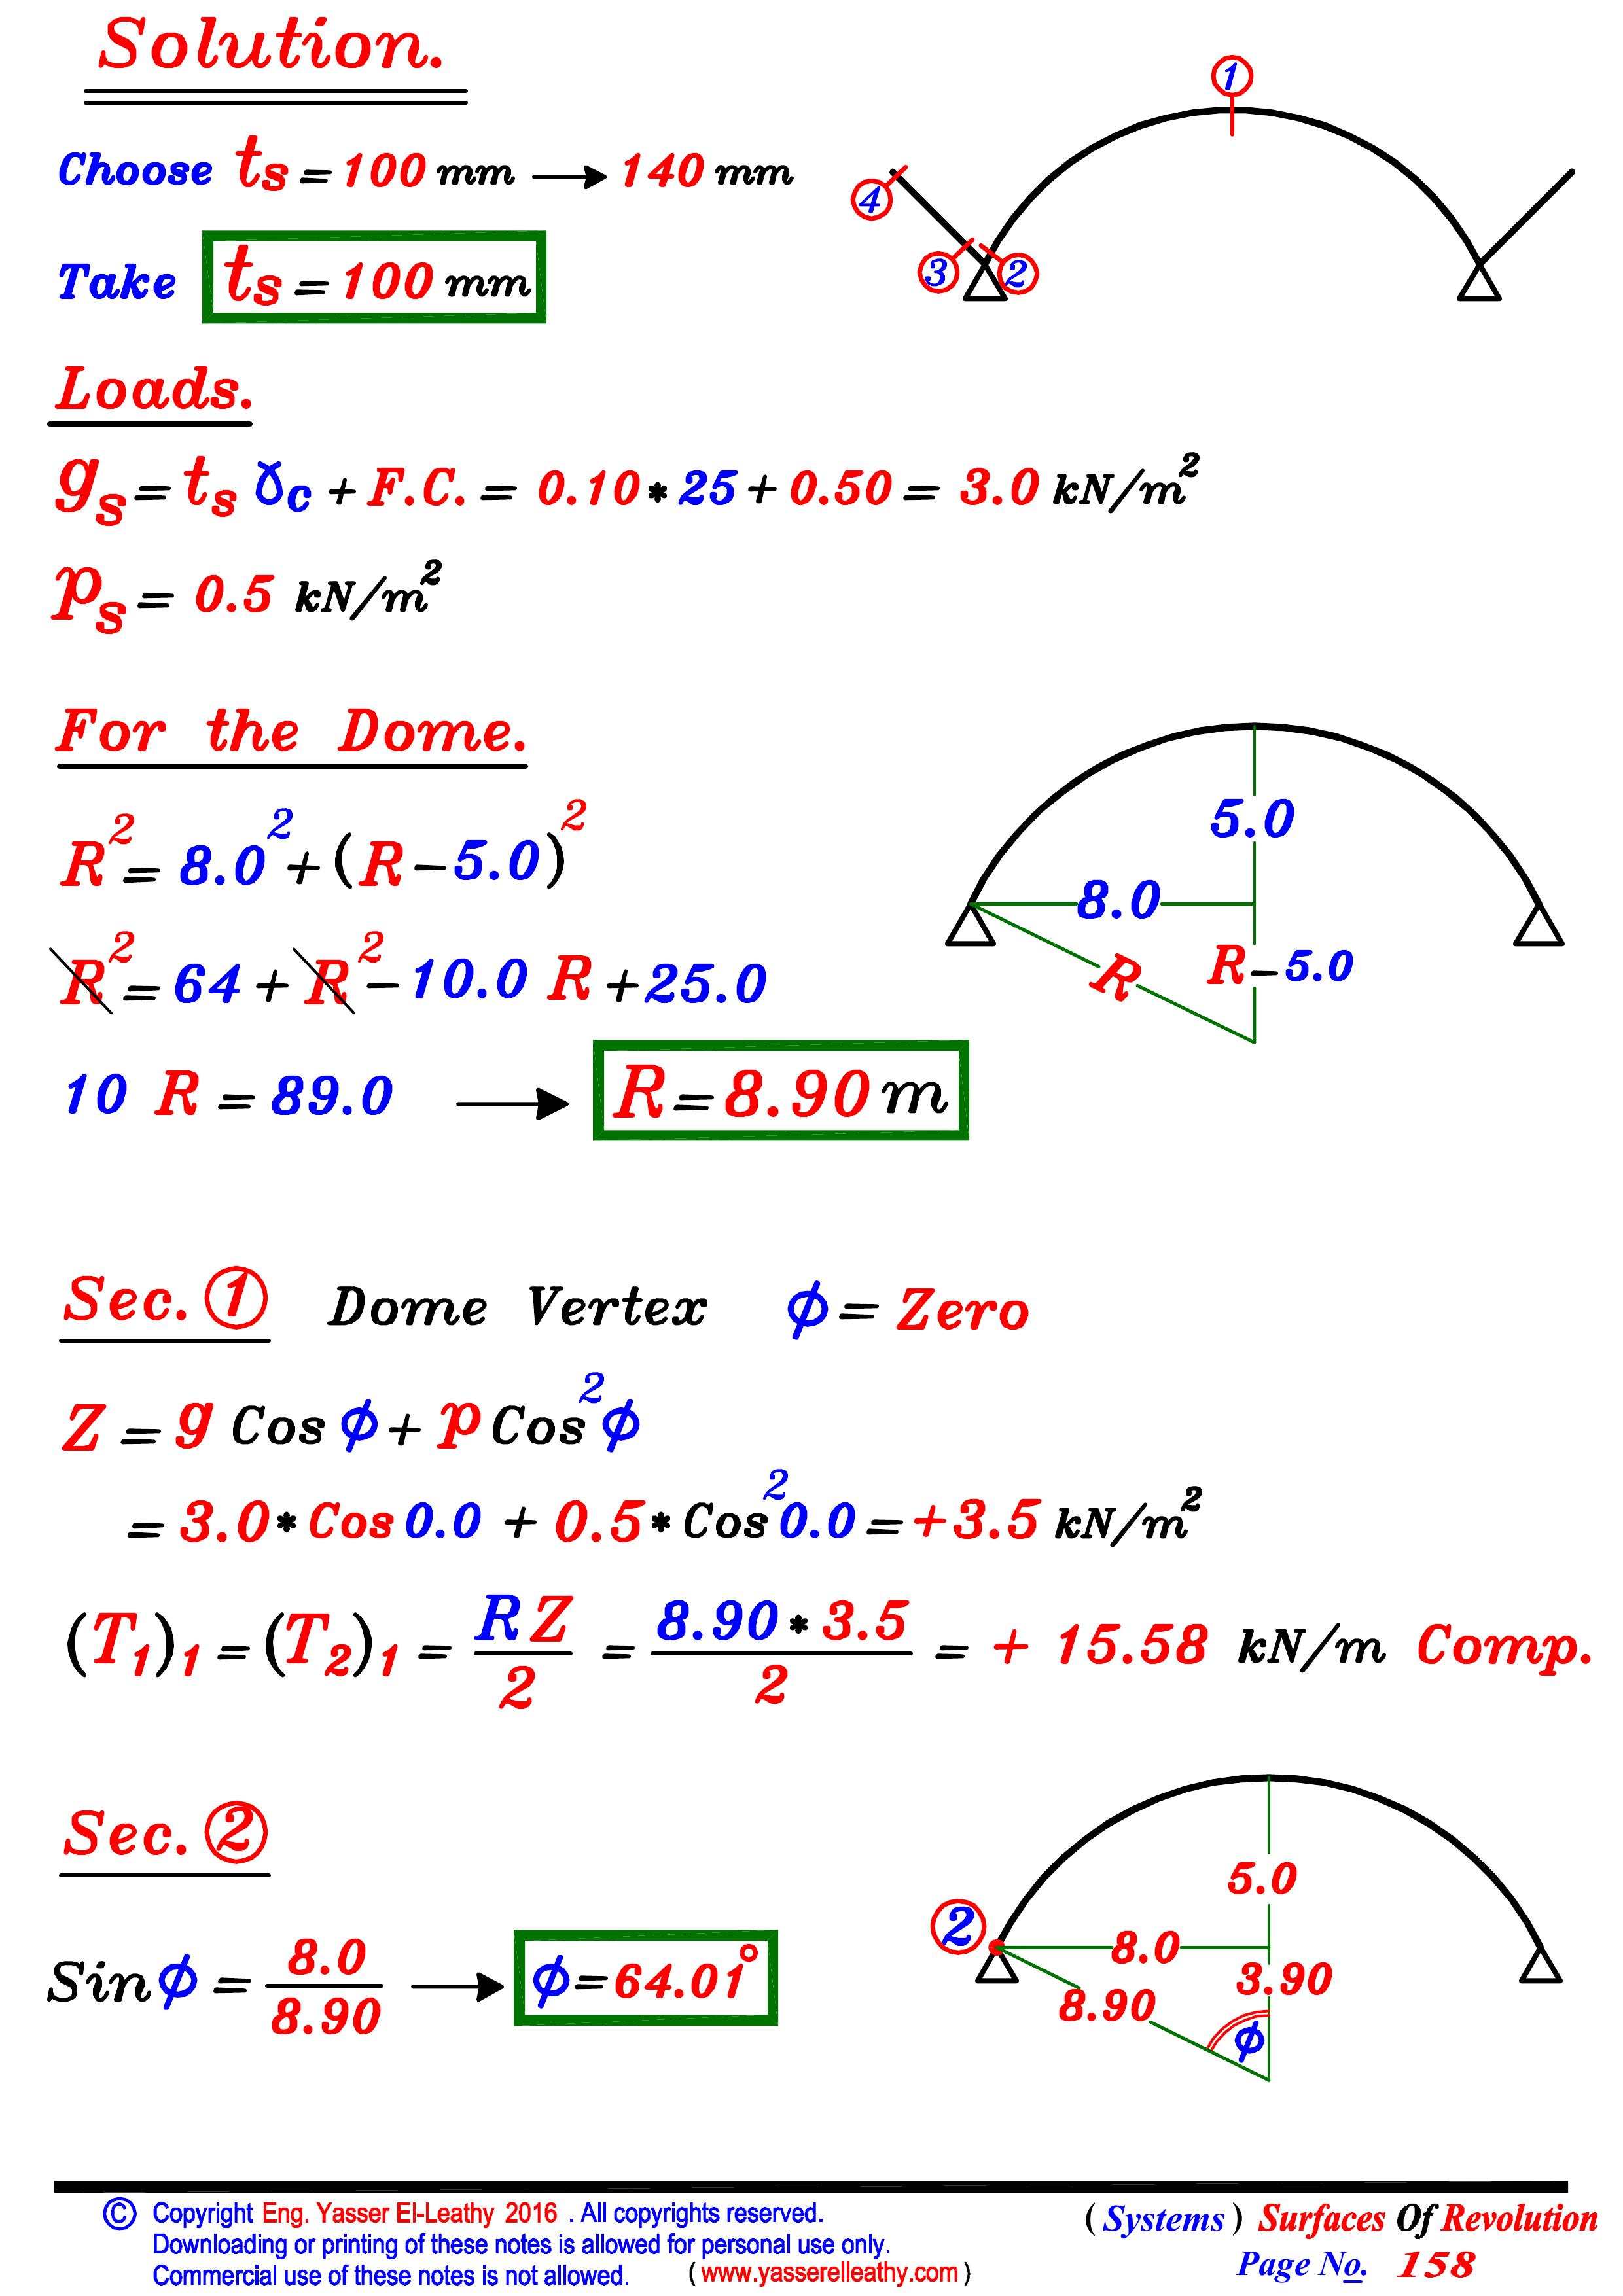 Solution.
1
Choose ts = 100 mm → 140 mm
4
Take ts = 100 mm
3 2
Loads.
gs = ts γc + F.C. = 0.10 * 25 + 0.50 = 3.0 kN/m²
ps = 0.5 kN/m²
For the Dome.
R² = 8.0² + (R - 5.0)²
5.0
8.0
R² = 64 + R² - 10.0 R + 25.0
R R-5.0
10 R = 89.0 → R = 8.90 m
Sec. 1 Dome Vertex ϕ = Zero
Z = g Cos ϕ + p Cos² ϕ
= 3.0 * Cos 0.0 + 0.5 * Cos² 0.0 = +3.5 kN/m²
(T1)1 = (T2)1 = RZ/2 = 8.90 * 3.5/2 = + 15.58 kN/m Comp.
Sec. 2
5.0
2
8.0
Sin ϕ = 8.0/8.90 → ϕ = 64.01°
3.90
8.90
ϕ
© Copyright Eng. Yasser El-Leathy 2016 . All copyrights reserved.
Downloading or printing of these notes is allowed for personal use only.
Commercial use of these notes is not allowed. ( www.yasserelleathy.com )
( Systems ) Surfaces Of Revolution
Page No. 158